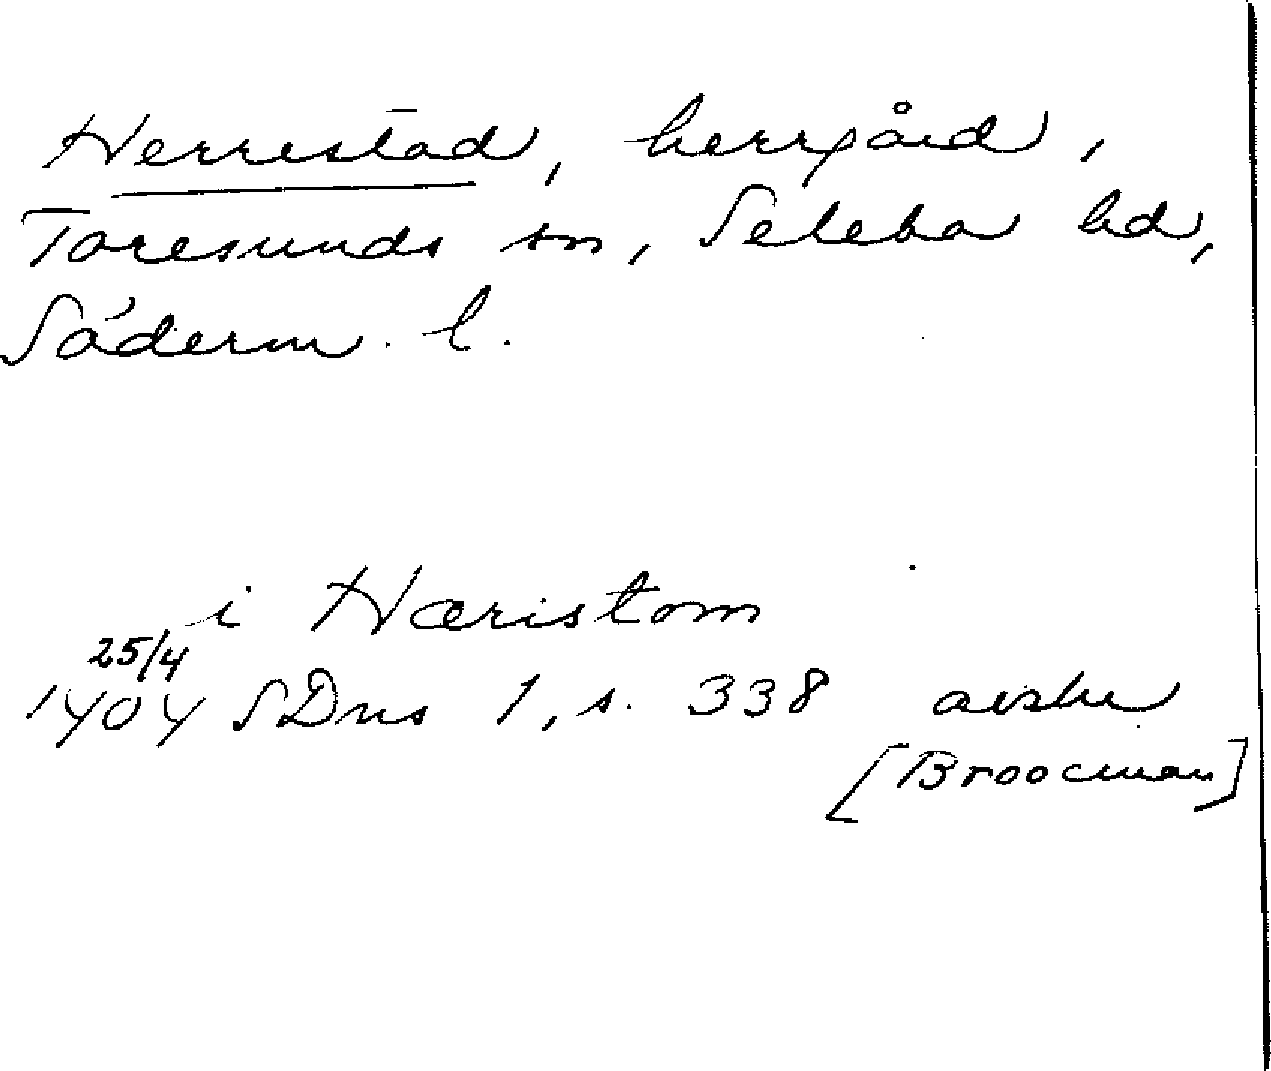 Herrestad, herrgård,
Toresunds sn, Selebo hd,
Söderm. l.
i Hæristom
25/4
1404 SDns 1, s. 338 avskr
[Broocman]